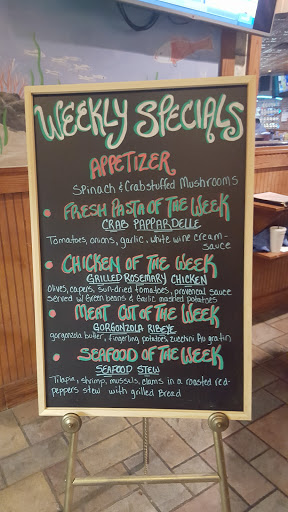 WEEKLY SPECIALS
APPETIZER
Spinach & Crab stuffed Mushrooms
• FRESH PASTA OF THE WEEK
CRAB PAPPARDELLE
Tomatoes, onions, garlic, white wine cream-
sauce
• CHICKEN OF THE WEEK
GRILLED ROSEMARY CHICKEN
olives, capers, sun-dried tomatoes, provencal sauce
served w/ Green beans & Garlic mashed potatoes
• MEAT CUT OF THE WEEK
GORGONZOLA RIBEYE
gorgonzola butter, fingerling potatoes, zucchini Au gratin
• SEAFOOD OF THE WEEK
SEAFOOD STEW
Tilapia, shrimp, mussuls, clams in a roasted red-
peppers stew with grilled Bread